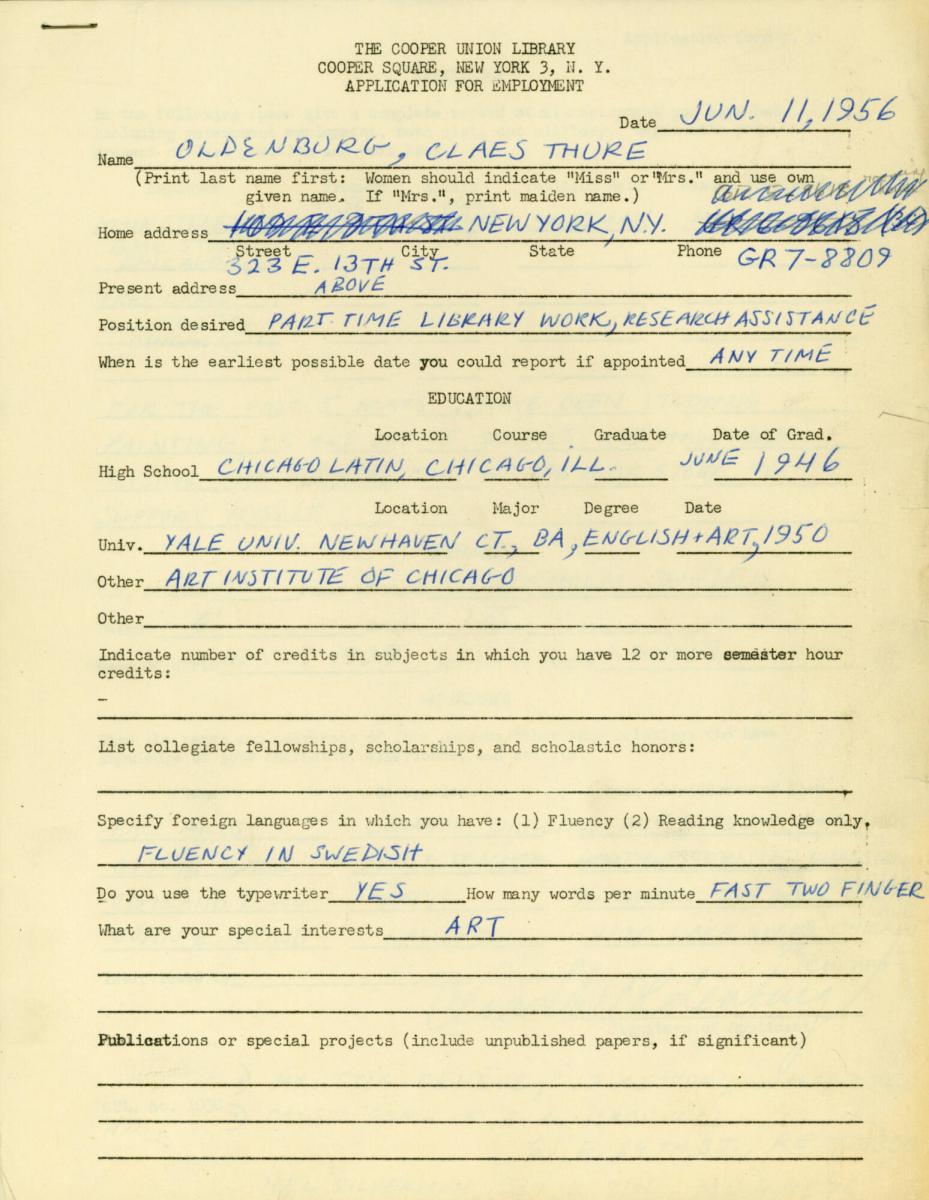 THE COOPER UNION LIBRARY
COOPER SQUARE, NEW YORK 3, N. Y.
APPLICATION FOR EMPLOYMENT
Date JUN. 11, 1956
Name OLDENBURG, CLAES THURE
(Print last name first: Women should indicate "Miss" or "Mrs." and use own
given name. If "Mrs.", print maiden name.)
Home address NEW YORK, N.Y.
Street City State Phone GR 7-8809
323 E. 13TH ST.
Present address ABOVE
Position desired PART TIME LIBRARY WORK, RESEARCH ASSISTANCE
When is the earliest possible date you could report if appointed ANY TIME
EDUCATION
Location Course Graduate Date of Grad.
High School CHICAGO LATIN, CHICAGO, ILL. JUNE 1946
Location Major Degree Date
Univ. YALE UNIV. NEWHAVEN CT., BA, ENGLISH + ART, 1950
Other ART INSTITUTE OF CHICAGO
Other
Indicate number of credits in subjects in which you have 12 or more semester hour
credits:
–
List collegiate fellowships, scholarships, and scholastic honors:
Specify foreign languages in which you have: (1) Fluency (2) Reading knowledge only.
FLUENCY IN SWEDISH
Do you use the typewriter YES How many words per minute FAST TWO FINGER
What are your special interests ART
Publications or special projects (include unpublished papers, if significant)